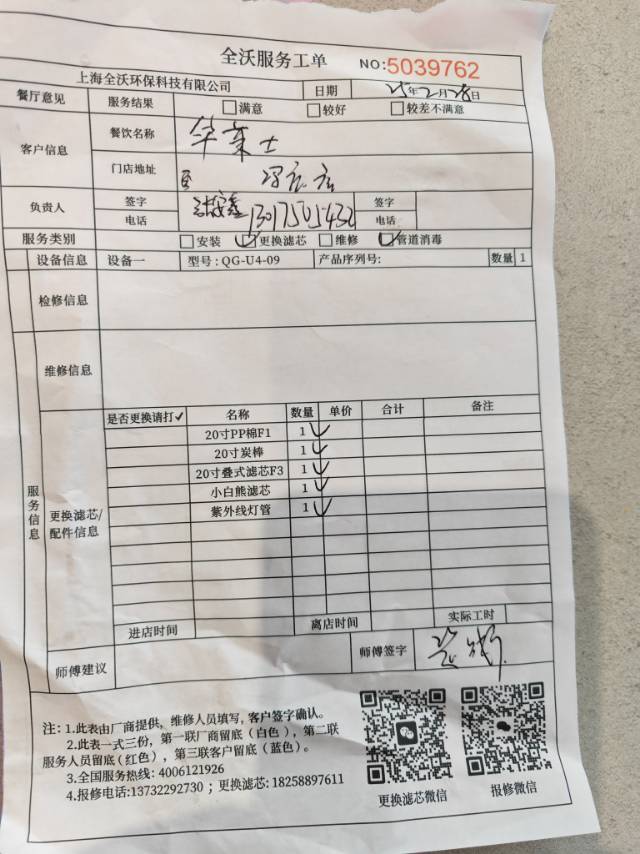 全沃服务工单 NO:5039762
上海全沃环保科技有限公司 日期 25年2月28日
餐厅意见 服务结果 □满意 □较好 □较差不满意
客户信息 餐饮名称 华莱士
门店地址
负责人 签字 签字
电话 13017505432 电话
服务类别 □安装 ☑更换滤芯 □维修 ☑管道消毒
设备信息 设备一 型号:QG-U4-09 产品序列号: 数量 1
检修信息
维修信息
服务信息
更换滤芯/配件信息
是否更换请打✓ 名称 数量 单价 合计 备注
20寸PP棉F1 1 ✓
20寸炭棒 1 ✓
20寸叠式滤芯F3 1 ✓
小白熊滤芯 1 ✓
紫外线灯管 1 ✓
进店时间 离店时间 实际工时
师傅建议 师傅签字
注:1.此表由厂商提供,维修人员填写,客户签字确认。
2.此表一式三份,第一联厂商留底(白色),第二联
服务人员留底(红色),第三联客户留底(蓝色)。
3.全国服务热线:4006121926
4.报修电话:13732292730;更换滤芯:18258897611
更换滤芯微信 报修微信